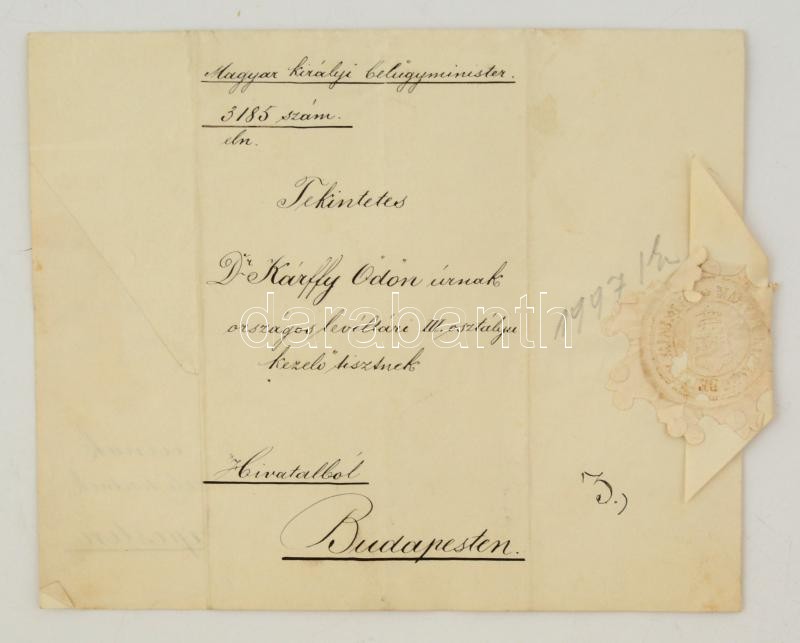 Magyar királyi belügyminister.
3185 szám.
eln.
Tekintetes
Dr Kárffy Ödön úrnak
országos levéltári III. osztályu
kezelő tisztnek
Hivatalból
Budapesten.
3.)
1997
darabanth